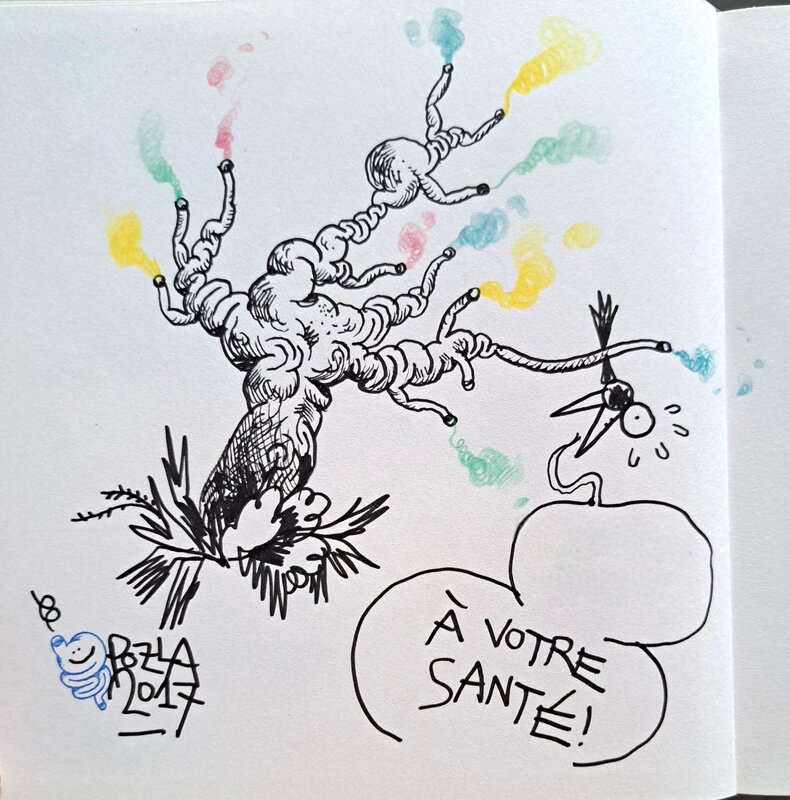 À VOTRE
SANTÉ!
POZLA
2017